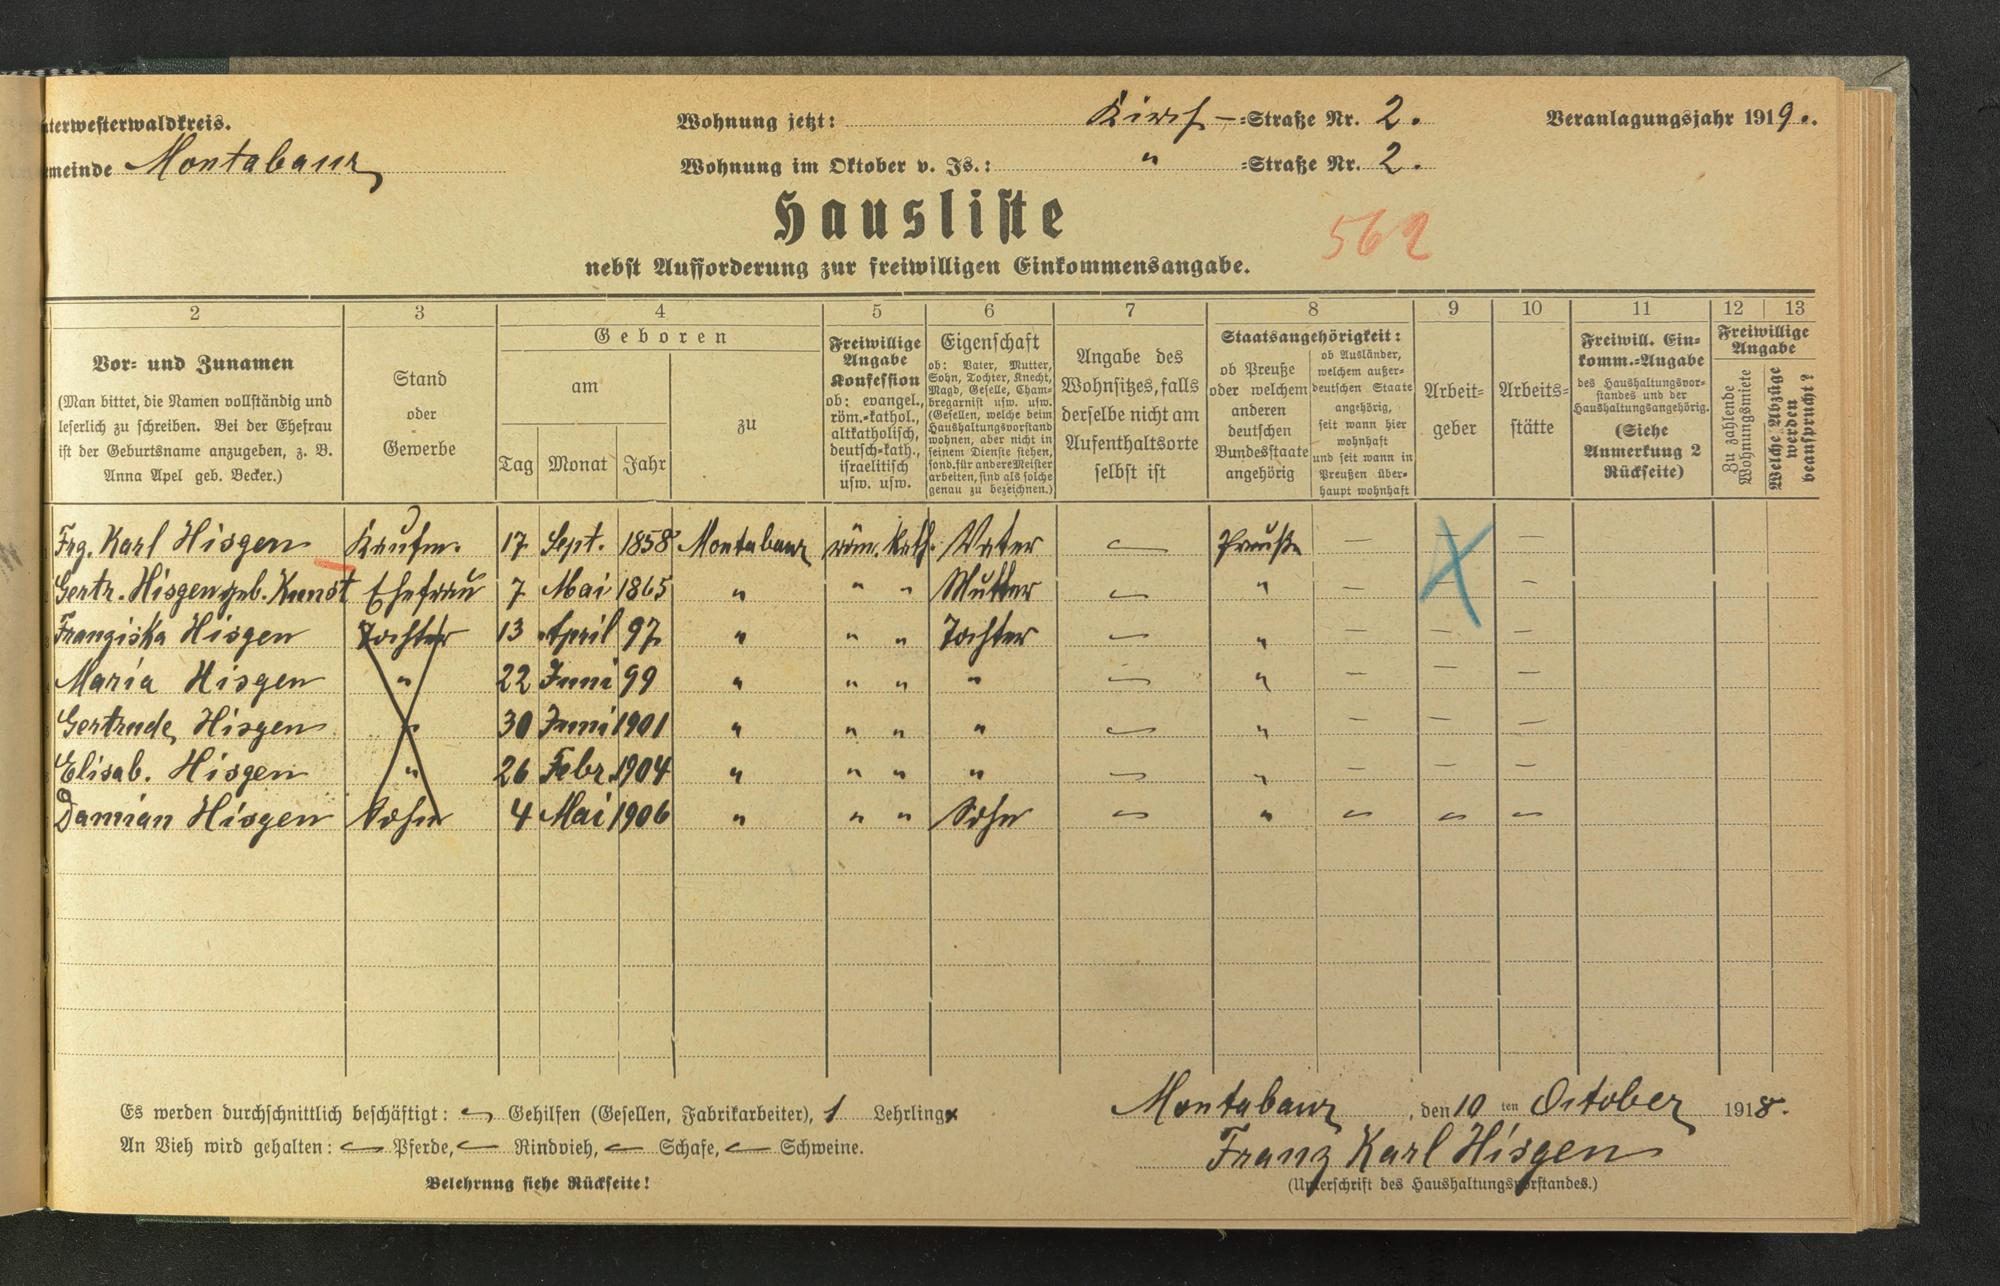 terwesterwaldkreis.
Wohnung jetzt: Kirch-=Straße Nr. 2.
Veranlagungsjahr 1919.
meinde Montabaur
Wohnung im Oktober v. Js.: " =Straße Nr. 2.
Hausliste
562
nebst Aufforderung zur freiwilligen Einkommensangabe.
2 3 4 5 6 7 8 9 10 11 12 13
Vor= und Zunamen
(Man bittet, die Namen vollständig und
leserlich zu schreiben. Bei der Ehefrau
ist der Geburtsname anzugeben, z. B.
Anna Apel geb. Becker.)
Stand
oder
Gewerbe
Geboren
am
Tag Monat Jahr
zu
Freiwillige
Angabe
Konfession
ob: evangel.,
röm.=kathol.,
altkatholisch,
deutsch=kath.,
israelitisch
usw. usw.
Eigenschaft
ob: Vater, Mutter,
Sohn, Tochter, Knecht,
Magd, Geselle, Cham=
bregarnist usw. usw.
(Gesellen, welche beim
Haushaltungsvorstand
wohnen, aber nicht in
seinem Dienste stehen,
sond. für andere Meister
arbeiten, sind als solche
genau zu bezeichnen.)
Angabe des
Wohnsitzes, falls
derselbe nicht am
Aufenthaltsorte
selbst ist
Staatsangehörigkeit:
ob Preuße
oder welchem
anderen
deutschen
Bundesstaate
angehörig
ob Ausländer,
welchem außer=
deutschen Staate
angehörig,
seit wann hier
wohnhaft
und seit wann in
Preußen über=
haupt wohnhaft
Arbeit=
geber
Arbeits=
stätte
Freiwill. Ein=
komm.=Angabe
des Haushaltungsvor=
standes und der
Haushaltungsangehörig.
(Siehe
Anmerkung 2
Rückseite)
Freiwillige
Angabe
Zu zahlende
Wohnungsmiete
Welche Abzüge
werden
beansprucht?
Frz. Karl Hisgen Kaufm. 17 Sept. 1858 Montabaur röm. kath. Vater — Preuße —
Gertr. Hisgen geb. Kunst Ehefrau 7 Mai 1865 " " " Mutter — " — —
Franziska Hisgen Tochter 13 April 97 " " " Tochter — " — — —
Maria Hisgen " 22 Juni 99 " " " " — " — — —
Gertrude Hisgen " 30 Juni 1901 " " " " — " — — —
Elisab. Hisgen " 26 Febr. 1904 " " " " — " — — —
Damian Hisgen Sohn 4 Mai 1906 " " " Sohn — " — — —
Es werden durchschnittlich beschäftigt: — Gehilfen (Gesellen, Fabrikarbeiter), 1 Lehrling
An Vieh wird gehalten: — Pferde, — Rindvieh, — Schafe, — Schweine.
Belehrung siehe Rückseite!
Montabaur, den 10 ten October 1918.
Franz Karl Hisgen
(Unterschrift des Haushaltungsvorstandes.)